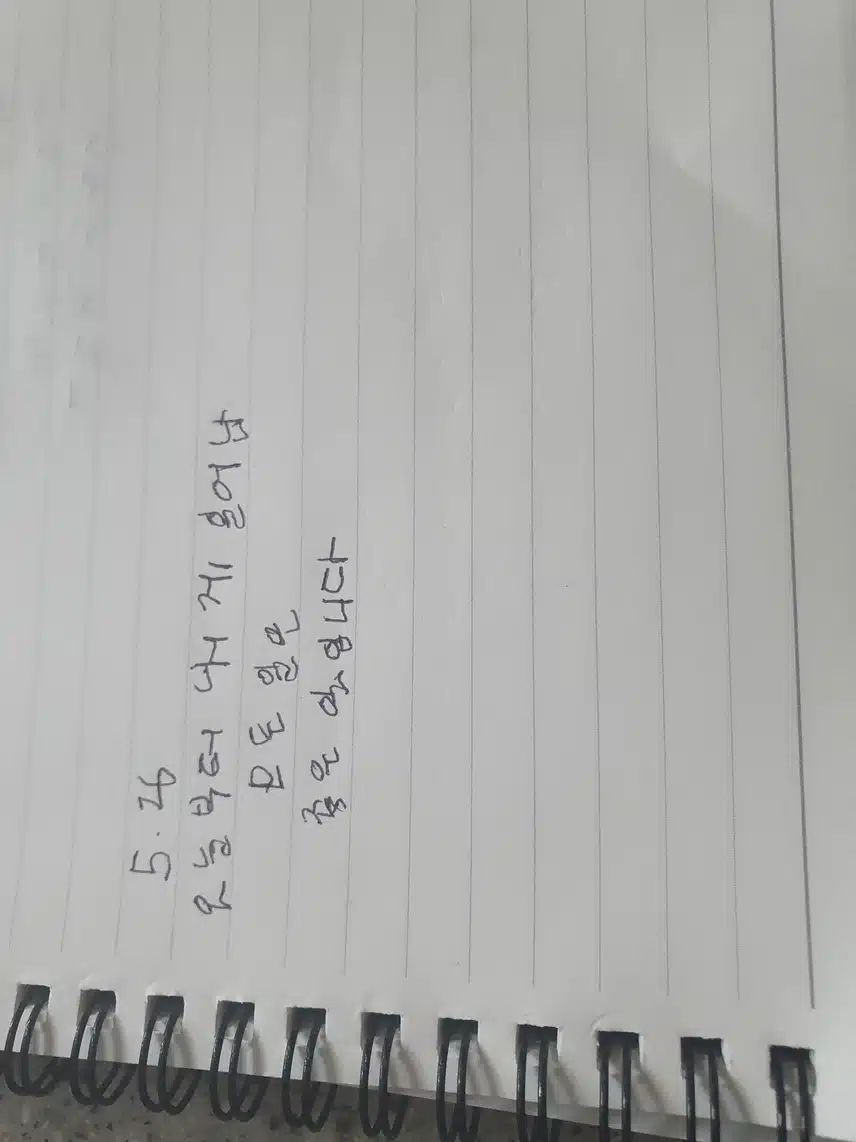 5.26
오늘부터 내게 일어날
모든 일은
좋은 일입니다